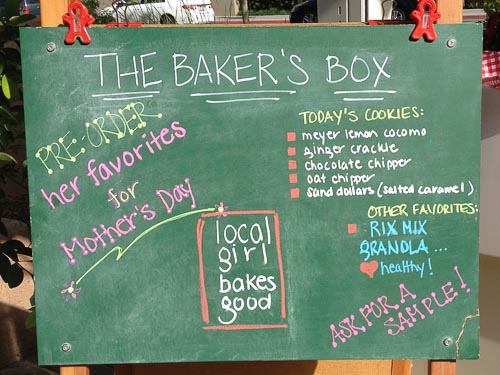 THE BAKER'S BOX
PRE-ORDER
her favorites
for
Mother's Day
TODAY'S COOKIES:
meyer lemon cocomo
ginger crackle
chocolate chipper
oat chipper
sand dollars (salted caramel)
OTHER FAVORITES:
RIX MIX
GRANOLA...
healthy!
local
girl
bakes
good
ASK FOR A
SAMPLE!